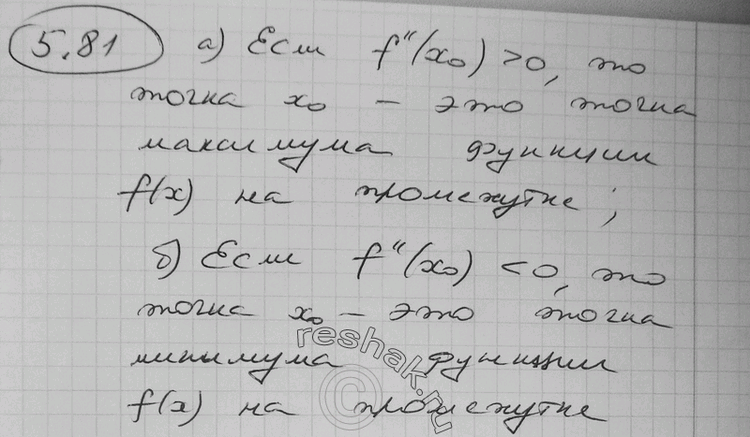 5.81 а) Если f''(x₀) >0, то
точка x₀ – это точка
максимума функции
f(x) на промежутке;
б) Если f''(x₀) <0, то
точка x₀ – это точка
минимума функции
f(x) на промежутке
reshak.ru
©